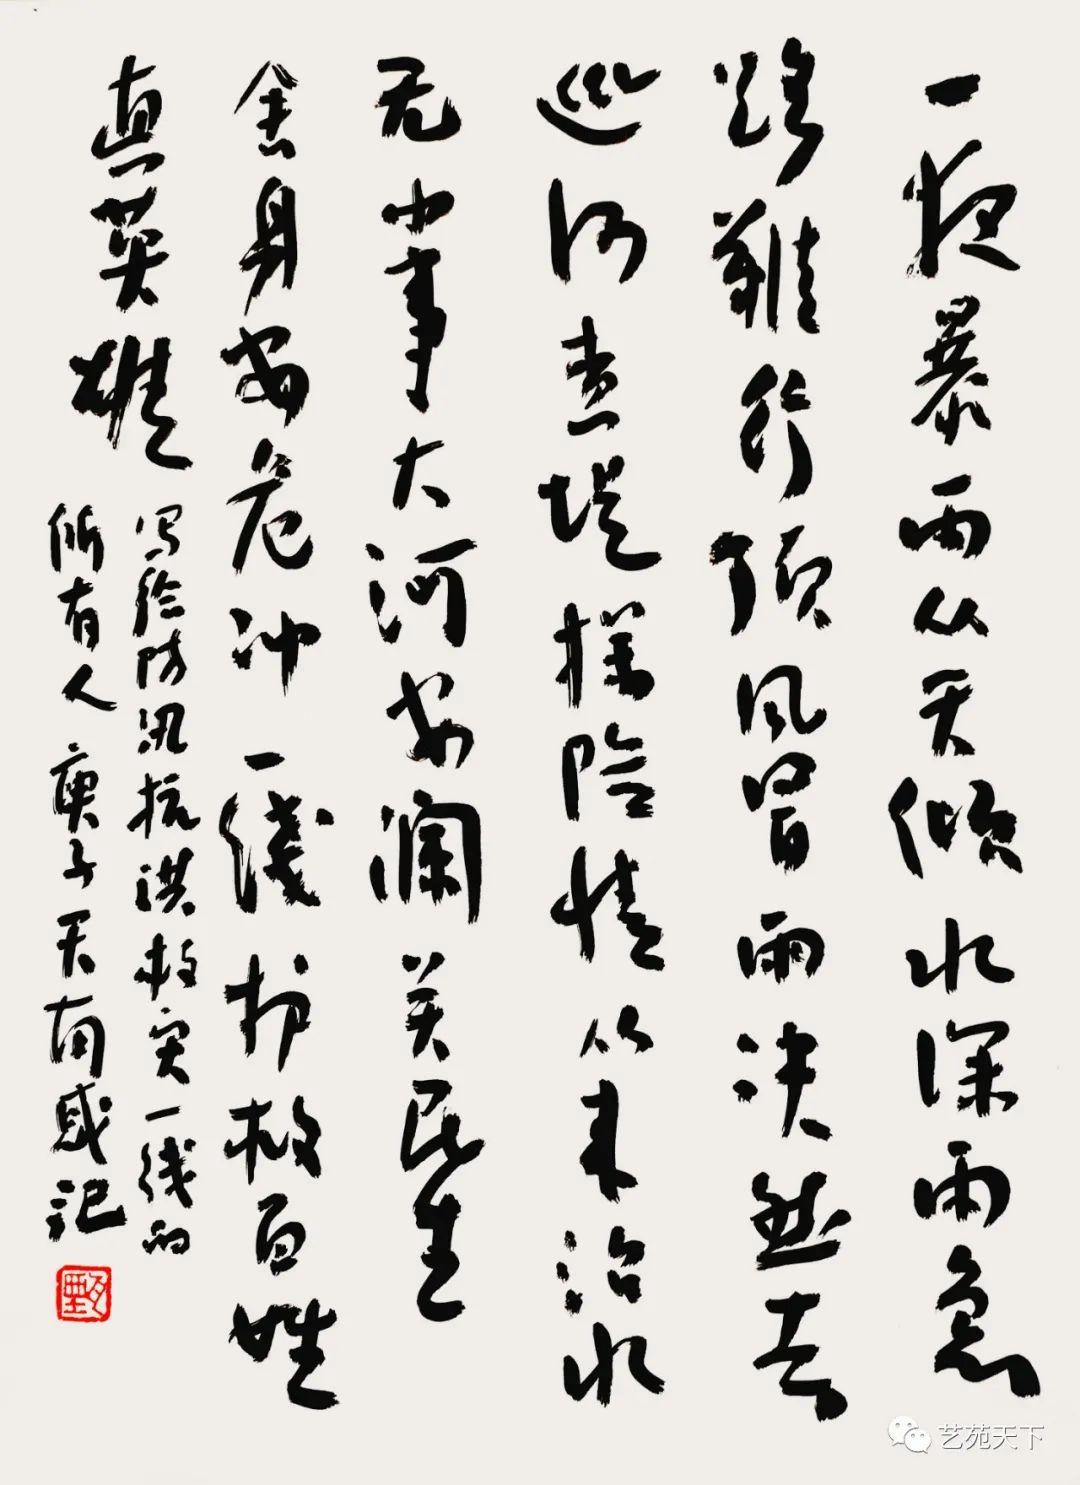 一夜暴雨从天倾水深雨急
路难行顶风冒雨决然去
巡河查堤探险情从来治水
无小事大河安澜关民生
舍身安危冲一线护救百姓
真英雄
写给防汛抗洪救灾一线的
所有人庚子天有感记
甄
艺苑天下